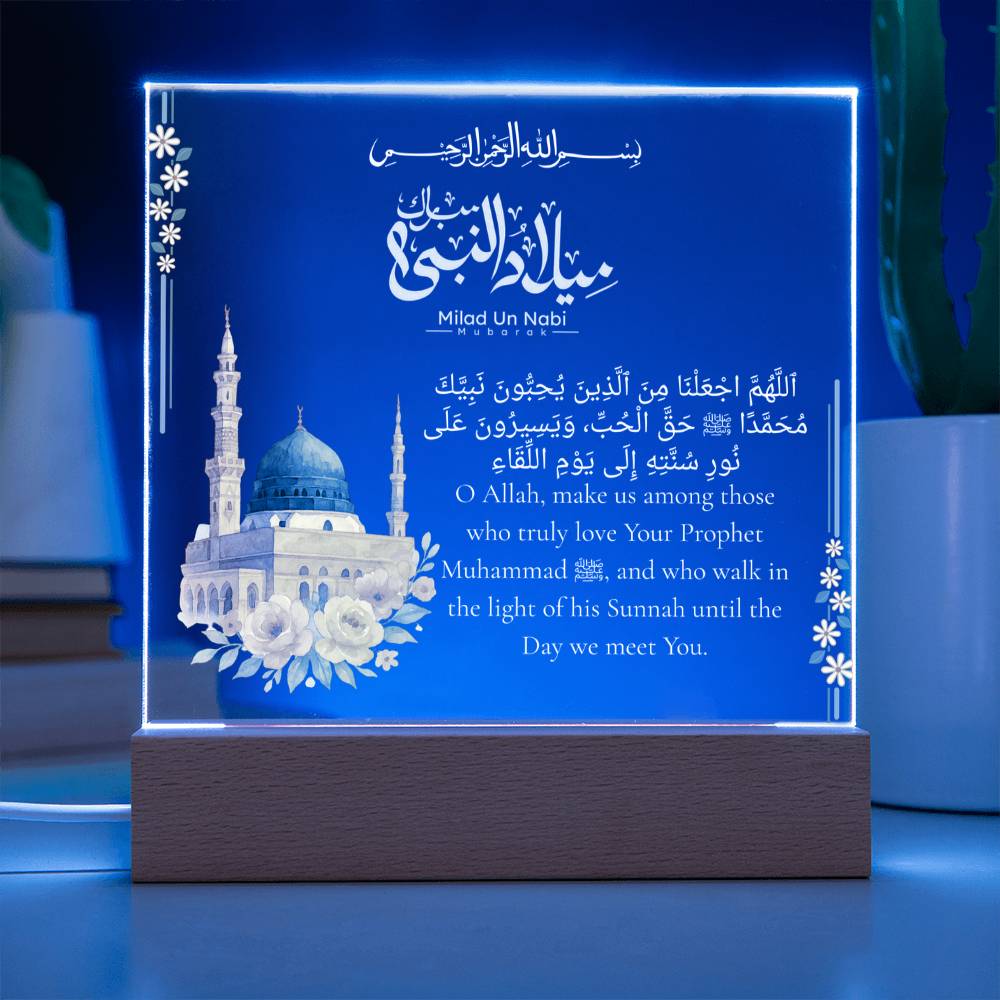 بِسْمِ اللهِ الرَّحْمٰنِ الرَّحِيْمِ
مبارك
ميلادُ النبیﷺ
Milad Un Nabi
Mubarak
ٱللَّهُمَّ اجْعَلْنَا مِنَ ٱلَّذِينَ يُحِبُّونَ نَبِيَّكَ
مُحَمَّدًا ﷺ حَقَّ الْحُبِّ، وَيَسِيرُونَ عَلَى
نُورِ سُنَّتِهِ إِلَى يَوْمِ اللِّقَاءِ
O Allah, make us among those
who truly love Your Prophet
Muhammad ﷺ, and who walk in
the light of his Sunnah until the
Day we meet You.